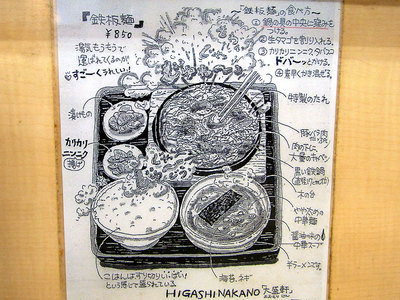 『鉄板麺』
¥850
湯気もうもうで
運ばれてくるのが
すごーくうれしい!
〜「鉄板麺」の食べ方〜
① 鍋の具の中央に窪みを
つける。
② 生タマゴを割り入れる。
③ カリカリニンニク、タバスコ
ドバーッとかける。
④ 素早くかき混ぜる。
特製のたれ
漬けもの
カリカリ
ニンニク
豚バラ肉
肉の下に
大量のキャベツ
黒い鉄鍋
木の台
やや太めの
中華麺
醤油味の
中華スープ
半ラーメンです。
海苔、ネギ
ごはんはすり切りいっぱい!
という感じで盛られている
HIGASHINAKANO 「大盛軒」